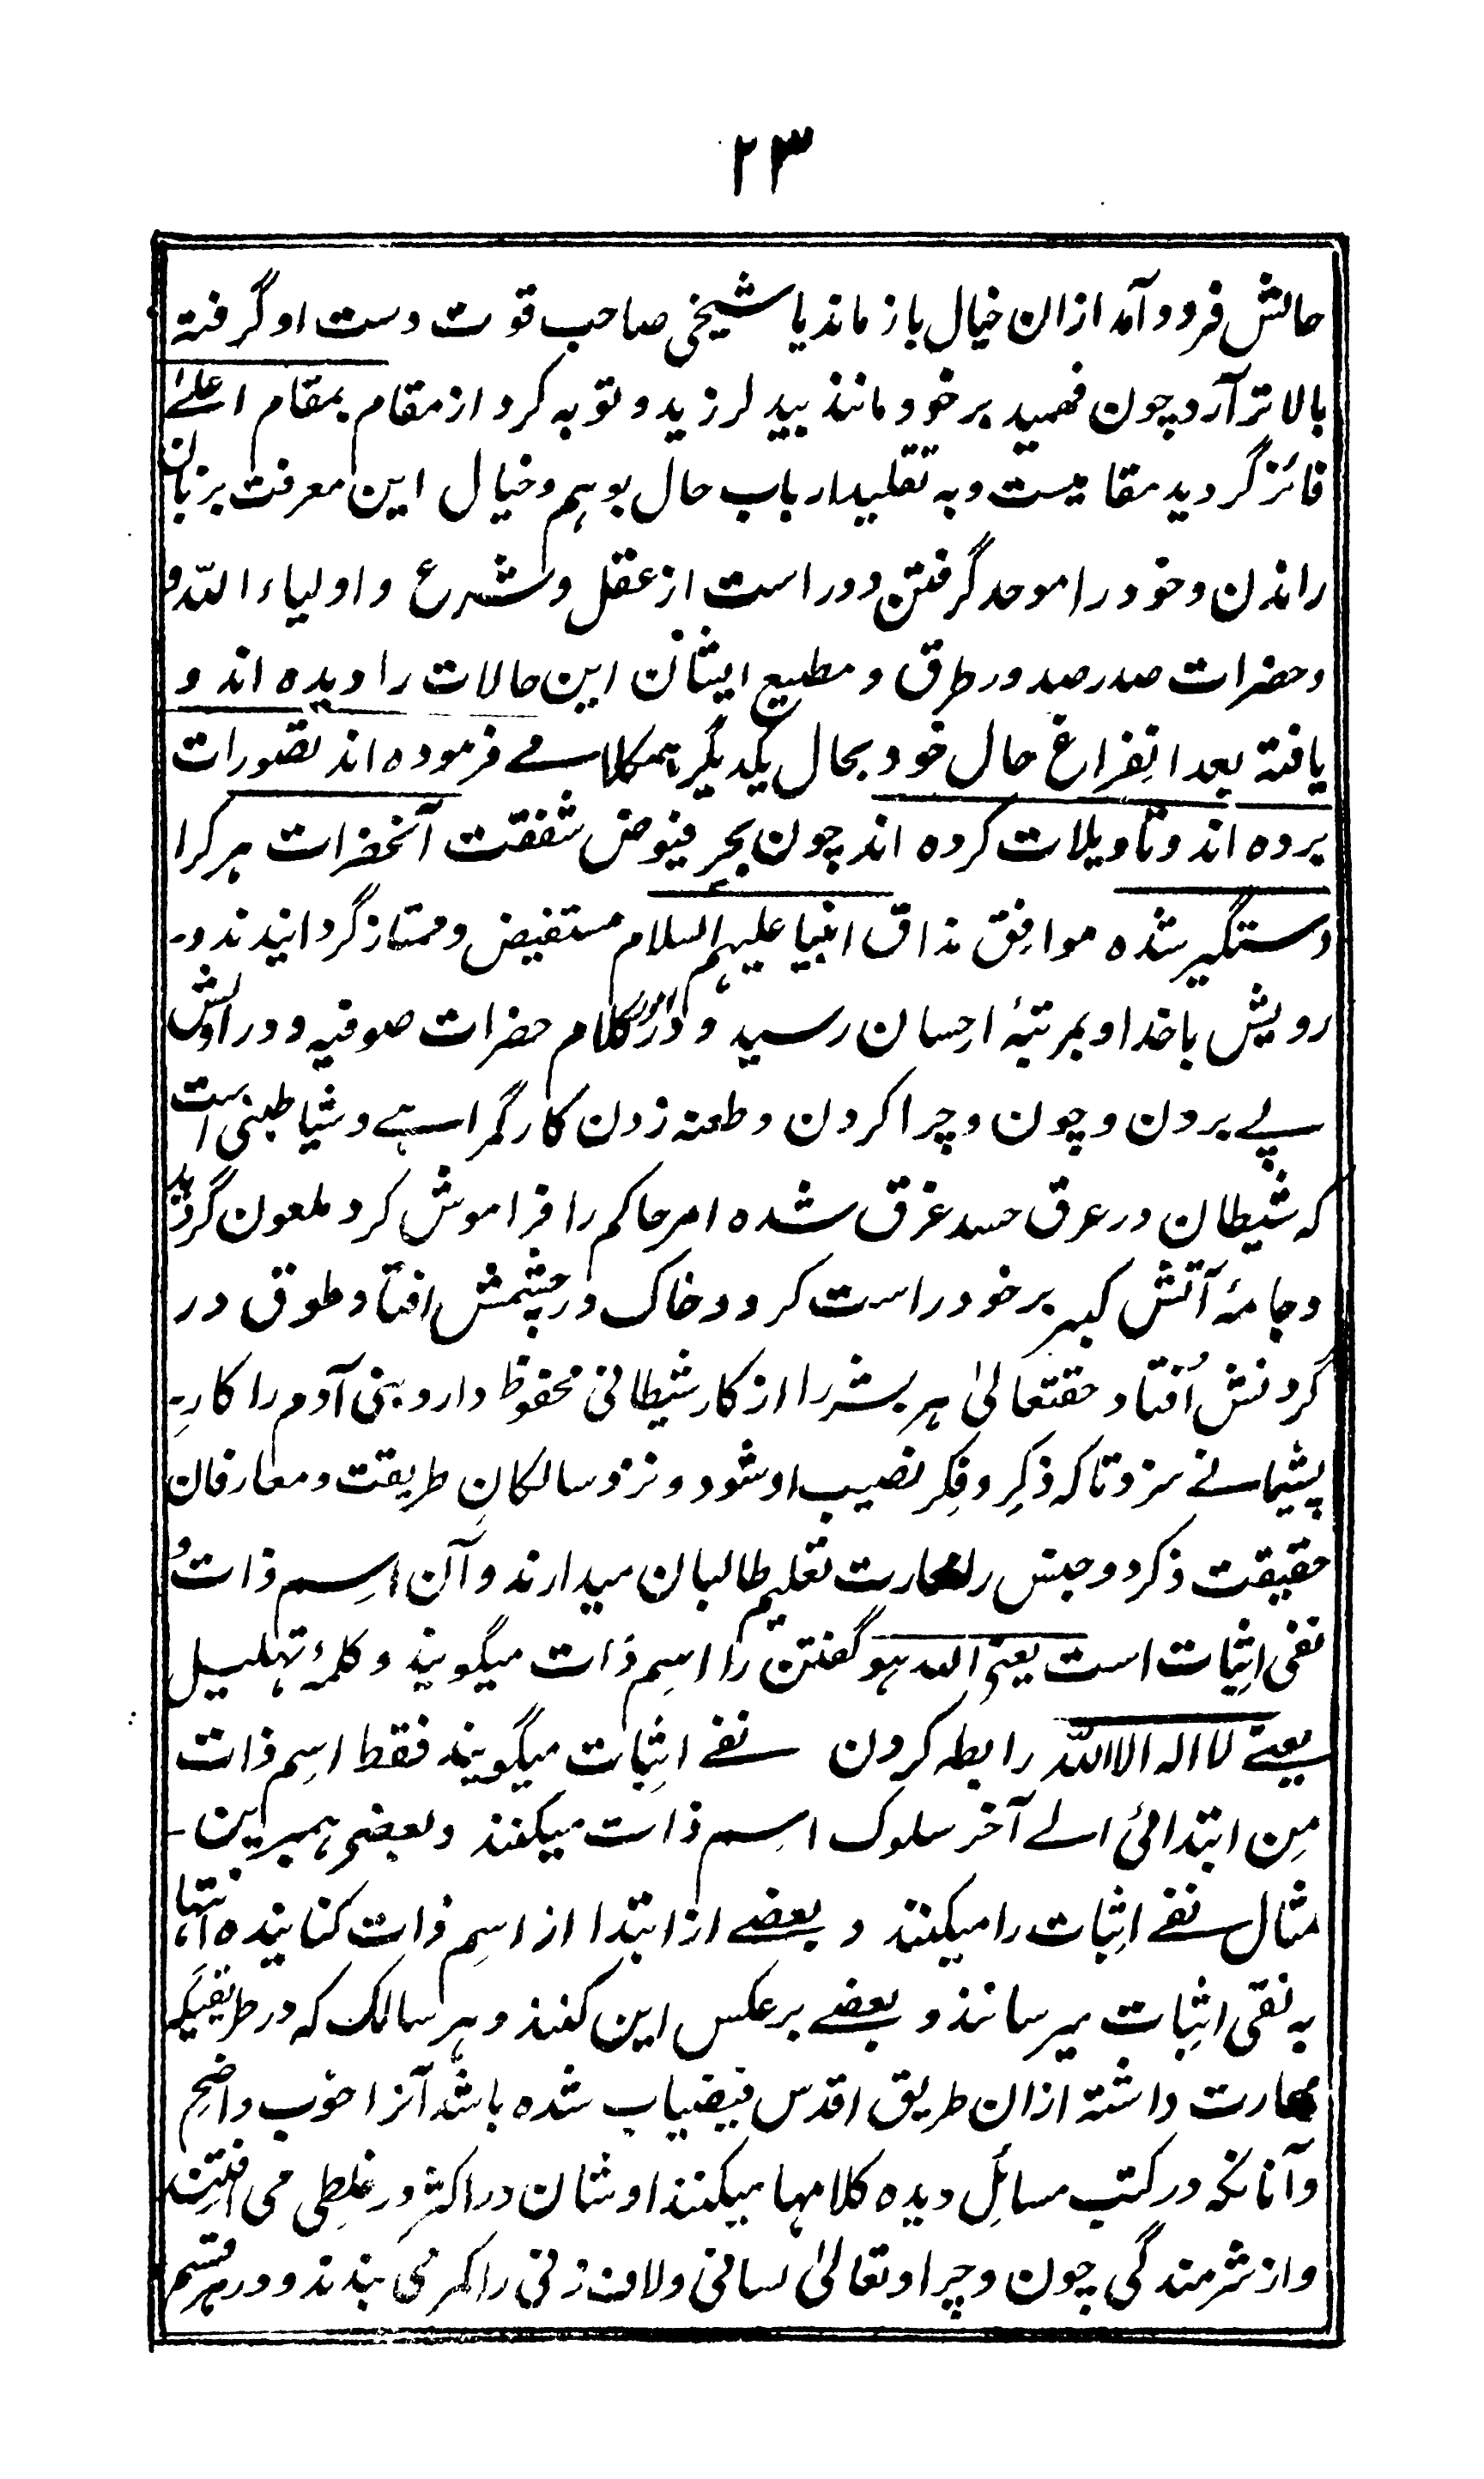 ۲۳
حالش فرود آمد ازان خیال باز ماند یا شیخی صاحب قوت دست او گرفتہ
بالا تر آرد چون فہمید بر خود مانند بید لرزید و توبہ کرد از مقام بمقام اعلےٰ
فائز گردید مقامیست و بہ تقلید ارباب حال بوہم و خیال این معرفت بر زبان
راندن و خود را موحد گرفتن دور است از عقل و شرع و اولیاء اللہ و
و حضرات صدر صدور طرق و مطیع ایشان این حالات را دیدہ اند و
یافتہ بعد انفراغ حال خود بحال یکدیگر ہمکلامے فرمودہ اند تصورات
بردہ اند و تاویلات کردہ اند چون بحرِ فیوض شفقت آنحضرات ہر کرا
دستگیر شدہ موافق مذاق انبیا علیہم السلام مستفیض و ممتاز گردانیدند و۔
رویش باخدا و بمرتبۂ احسان رسید و در امور کلام حضرات صوفیہ و در اویش
پے بردن و چون و چرا کردن و طعنہ زدن کار گمراہے و شیاطینی است
کہ شیطان در عرق حسد غرق شدہ امر حاکم را فراموش کرد ملعون گردید
و جامۂ آتش کبر بر خود راست کرد و خاک در چشمش افتاد و طوق در
گردنش اُفتاد حقتعالیٰ ہر بشر را از کار شیطانی محفوظ دارد بنی آدم را کارِ۔
پشیمانے سزد تاکہ ذکِر و فکِر نصیب او شود و نزد سالکانِ طریقت و معارفان
حقیقت ذکر دو جنس را مہارت تعلیم طالبان میدارند و آن اسِم ذات و
نفی اثبات است یعنی اللہ ہو گفتن را اسِم ذات میگویند و کلمۂ تہلیل
یعنے لا الہ الا اللہ رابطہ کردن نفے اثبات میگویند فقط اسِم ذات
مِن ابتدائی الے آخر سلوک اسِم ذات میکنند و بعضی ہمبرین۔
مثال نفے اثبات را میکنند و بعضے از ابتدا از اسِم ذات کنایندہ انتہا
بہ نفی اثبات میرسانند و بعضے بر عکس این کنند و ہر سالک کہ در طریقیکہ
مہارت داشتہ ازان طریق اقدس فیضیاب شدہ باشد آنرا خوب واضح
و آنانکہ در کتب مسائلِ دیدہ کلامہا میکنند اوشان در اکثر در غلطی می افتند
و از شرمندگی چون و چرا و تعالیٰ لسانی و لاف زنی را کمر می بندند و در ہر قسم